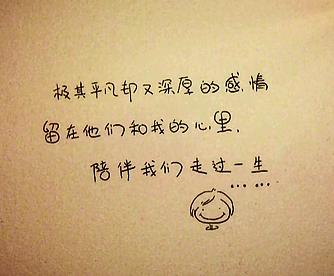 极其平凡却又深厚的感情
留在他们和我的心里.
陪伴我们走过一生
... ...